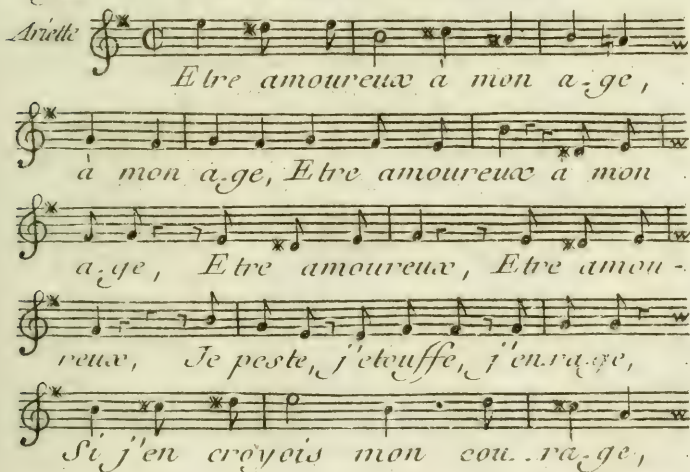 Ariette
Etre amoureux à mon a-ge,
à mon a-ge, Etre amoureux à mon
a-ge, Etre amoureux, Etre amou-
reux, Je peste, j'etouffe, j'enrage,
Si j'en croyois mon cou..ra-ge,